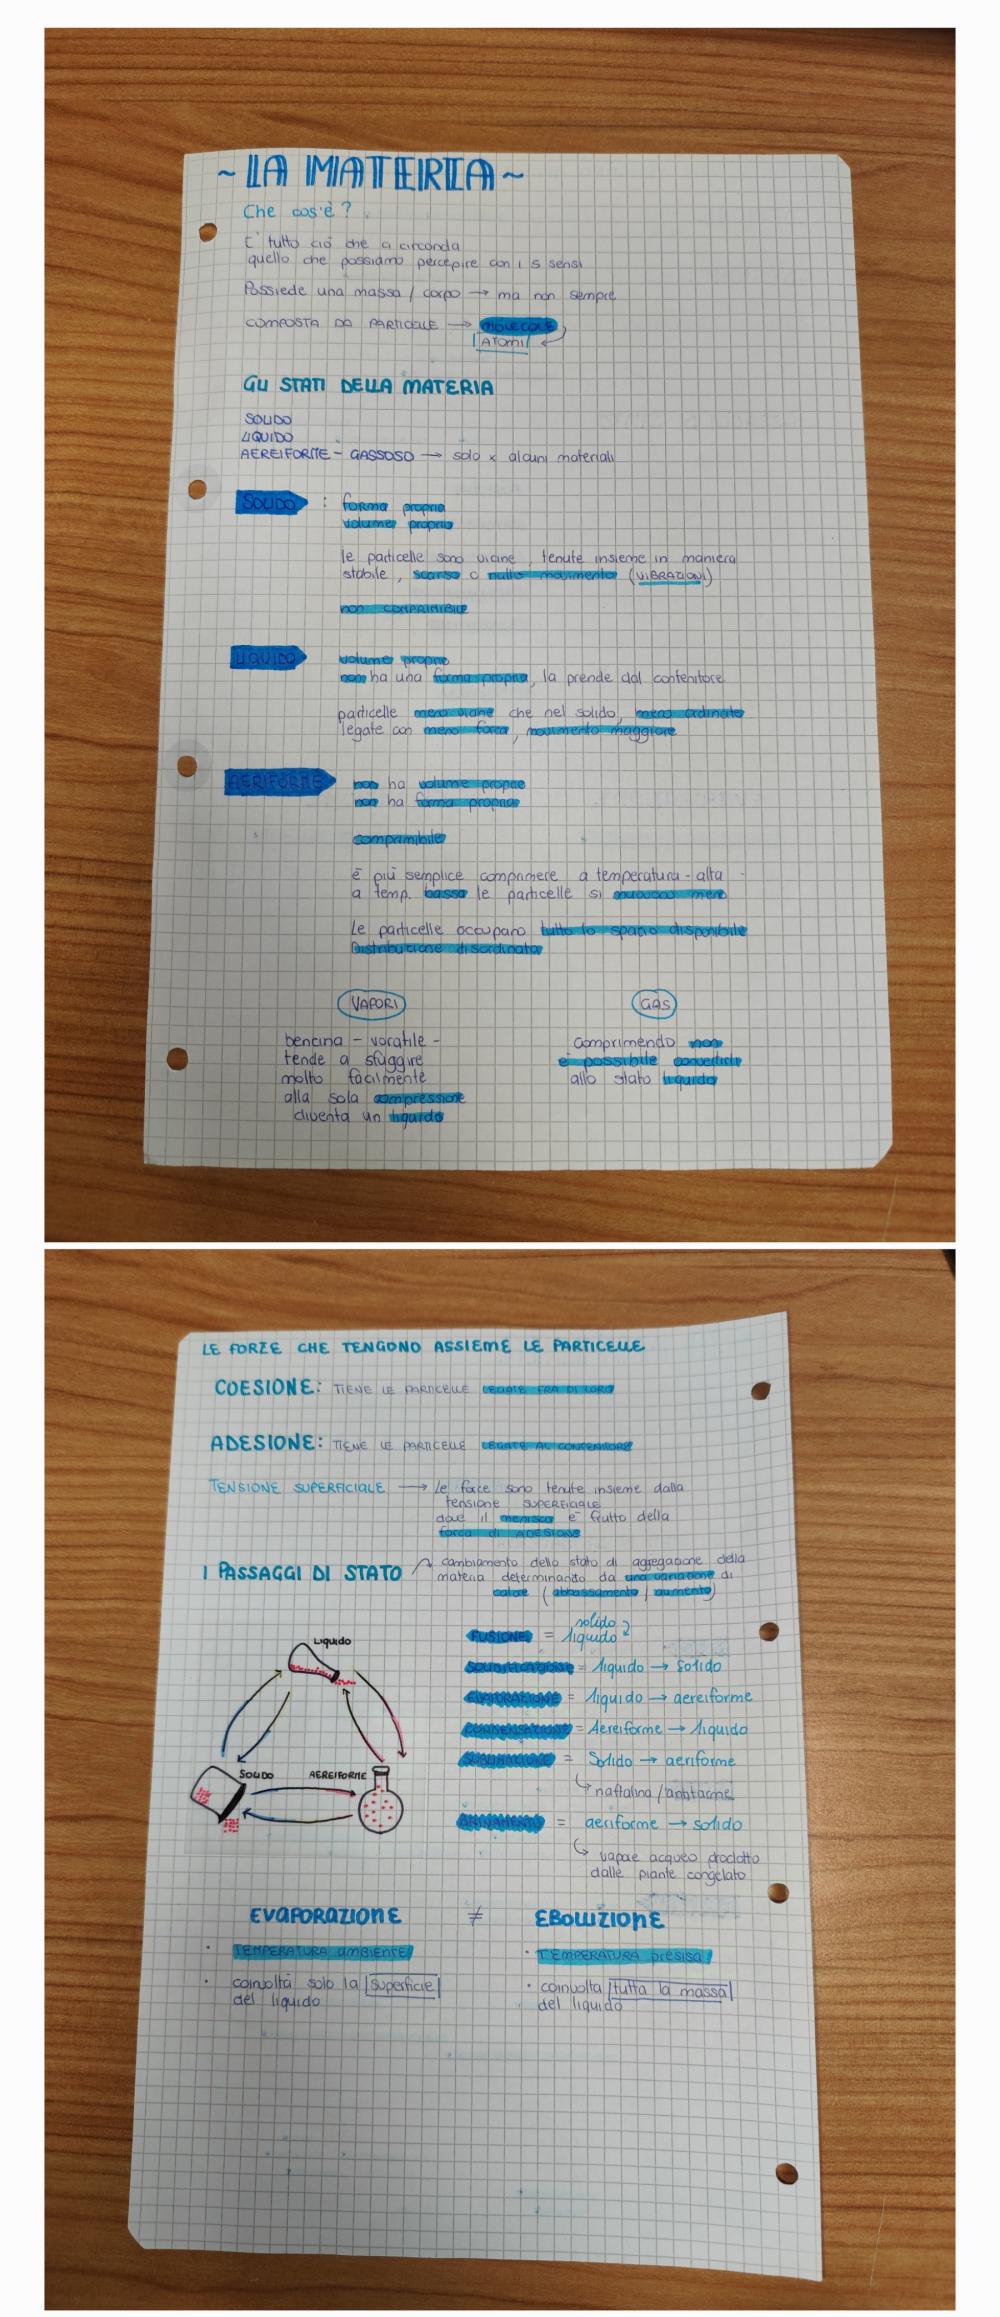 ~ LA MATERIA ~
Che cos'è?
E' tutto ciò che ci circonda
quello che possiamo percepire con i 5 sensi
Possiede una massa / corpo → ma non sempre
COMPOSTA DA PARTICELLE → MOLECOLE
ATOMI
GLI STATI DELLA MATERIA
SOLIDO
LIQUIDO
AEREIFORME - GASSOSO → solo x alcuni materiali
SOLIDO : forma propria
volume proprio
le particelle sono vicine, tenute insieme in maniera
stabile, scarso o nullo movimento (VIBRAZIONI)
non COMPRIMIBILE
LIQUIDO volume proprio
non ha una forma propria, la prende dal contenitore
particelle meno vicine che nel solido, meno ordinate
legate con meno forza, movimento maggiore
AERIFORME non ha volume proprio
non ha forma propria
comprimibile
è più semplice comprimere a temperatura - alta -
a temp. bassa le particelle si muovono meno
Le particelle occupano tutto lo spazio disponibile
Distribuzione disordinata
VAPORI
benzina - voratile -
tende a sfuggire
molto facilmente
alla sola compressione
diventa un liquido
GAS
comprimendo non
è possibile convertirli
allo stato liquido
LE FORZE CHE TENGONO ASSIEME LE PARTICELLE
COESIONE: TIENE LE PARTICELLE LEGATE FRA DI LORO
ADESIONE: TIENE LE PARTICELLE LEGATE AL CONTENITORE
TENSIONE SUPERFICIALE → Le forze sono tenute insieme dalla
tensione SUPERFICIALE
dove il menisco è frutto della
forza di ADESIONE
I PASSAGGI DI STATO cambiamento dello stato di aggregazione della
materia determinando da una variazione di
calore (abbassamento / aumento)
Liquido
SOLIDO
AEREIFORME
FUSIONE = solido
liquido
SOLIDIFICAZIONE = liquido → solido
EVAPORAZIONE = liquido → aereiforme
CONDENSAZIONE = Aereiforme → liquido
SUBLIMAZIONE = Solido → aeriforme
naftalina /
BRINAMENTO = aeriforme → solido
vapore acqueo prodotto
dalle piante congelato
EVAPORAZIONE ≠ EBOLLIZIONE
• TEMPERATURA ambiente
• coinvolta solo la superficie
del liquido
• TEMPERATURA presisa
• coinvolta tutta la massa
del liquido